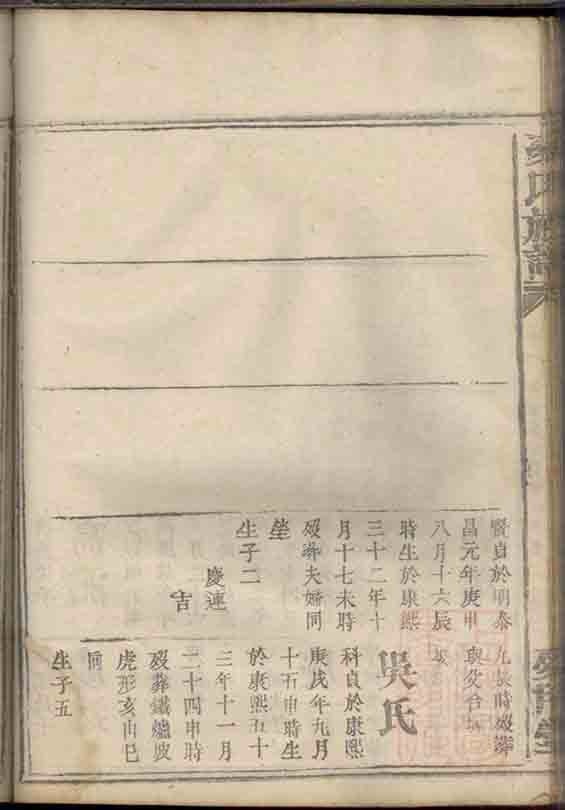 氏族譜
賢貞於明泰
昌元年庚申
八月十六辰
時生於康熙
三十二年十
月十七未時
歿葬夫婦同
塋
生子二
慶連
吉
九辰時歿葬
與父合
吳氏
科貞於康熙
庚戌年九月
十五申時生
於康熙五十
三年十一月
二十四申時
歿葬鐵爐坡
虎形亥山巳
向
生子五